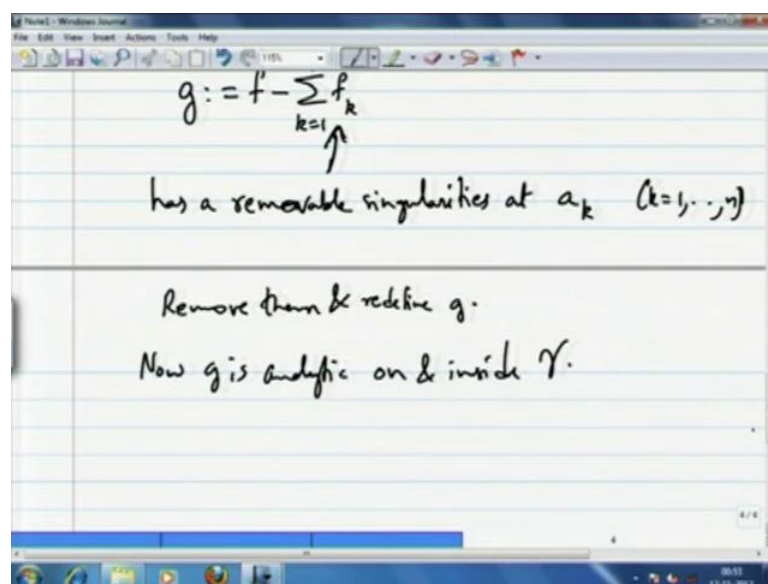 Note1 - Windows Journal
File Edit View Insert Actions Tools Help
115%
g := f - ∑ f_k
k=1
has a removable singularities at a_k (k=1,..,n)
Remove them & redefine g.
Now g is analytic on & inside γ.
4/4
4